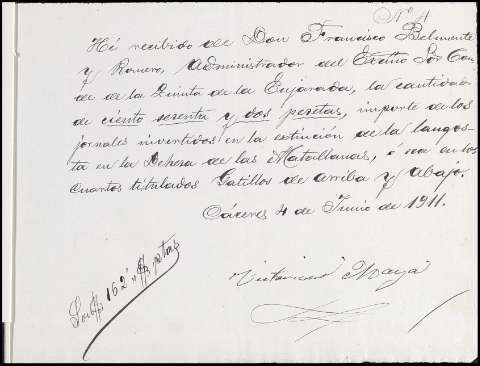 Nº 4
Hé recibido de Don Francisco Belmonte
y Romero, Administrador del Excmo Sor Con-
de de la Quinta de la Enjarada, la cantidad
de ciento sesenta y dos pesetas, importe de los
jornales invertidos en la extinción de la langos-
ta en la Dehesa de las Matallanas, ó sea en los
cuartos titulados Gatillos de arriba y abajo.
Cáceres 4 de Junio de 1911.
Victoriano Maya
Son 162 ptas